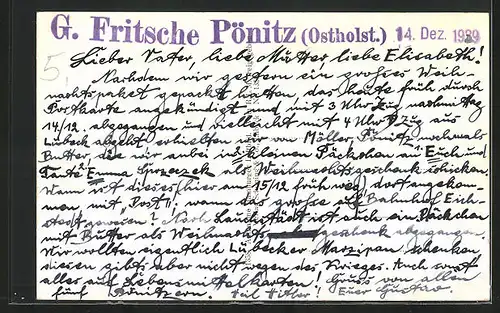 G. Fritsche Pönitz (Ostholst.) 14. Dez. 1939
5.
Lieber Vater, liebe Mutter, liebe Elisabeth!
Nachdem wir gestern ein großes Weih-
nachtspaket gepackt hatten, das heute früh durch
Postkarte angekündigt und mit 3 Uhr Zug nachmittag
14/12. abgegangen und vielleicht mit 4 Uhr D Zug aus
Lübeck abgeht erhielten wir von Möller, Pönitz nochmals
Butter, die wir anbei in kleinen Päckchen an Euch und
Tante Emma als Weihnachtsgeschenk schicken.
Wann ist dieses (hier am 15/12 früh weg) dort angekom-
men mit "Post"? wann das große auf Bahnhof Eich-
stedt gewesen? Nach Lauchstädt ist auch ein Päckchen
mit Butter als Weihnachts geschenk abgegangen
Wir wollten eigentlich Lübecker Marzipan schenken
diesen gibts aber nicht wegen des Krieges. Auch sonst
alles auf Lebensmittelkarten! Gruss von allen
fünf Pönitzern. Heil Hitler! Euer Gustav.